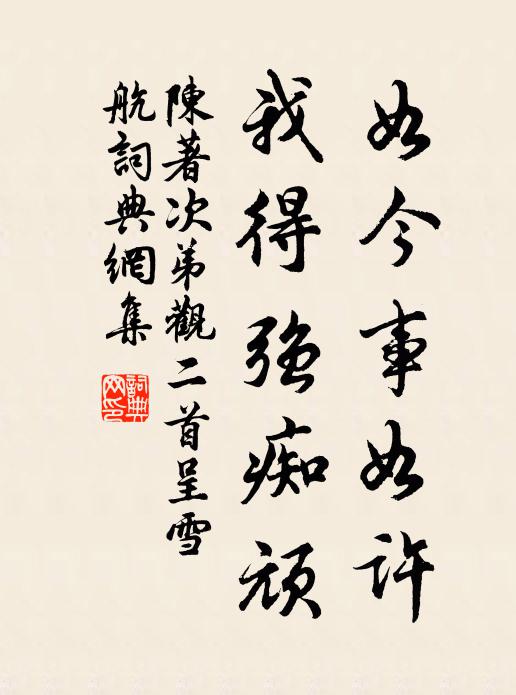 如今事如许
我得强痴顽
陳著次弟觀二首呈雪
航詞典網集
詞典网印